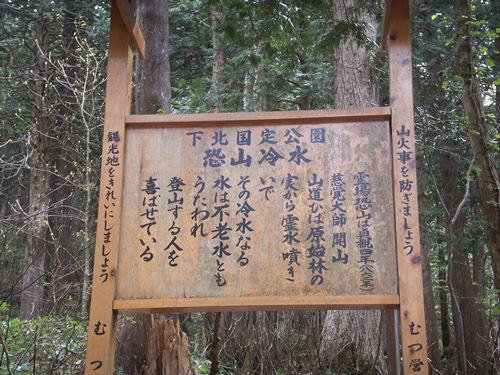 下北国定公園
恐山冷水
霊場恐山は貞観四年(八六二年)
慈覚大師 開山
山道かは原始林の
実から霊水噴き
いで
その冷水なる
水は不老水とも
うたわれ
登山する人を
喜ばせている
山火事を防ぎましょう
むつ営
観光地をきれいにしましょう
むつ